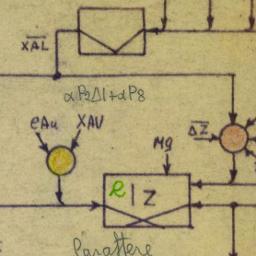 XAL
αP2Δ1+αP8
eAu XAV
ΔZ
Mg
R | Z
Carattere